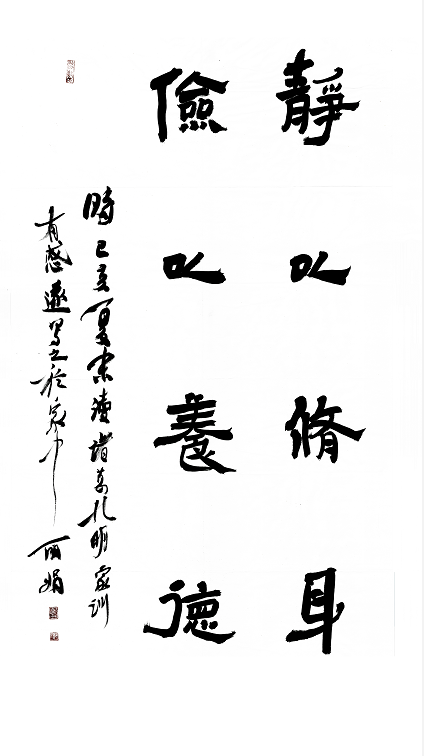 靜以脩身
儉以養德
時己亥夏讀諸葛孔明家训
有感遂写之於家中 丽娟